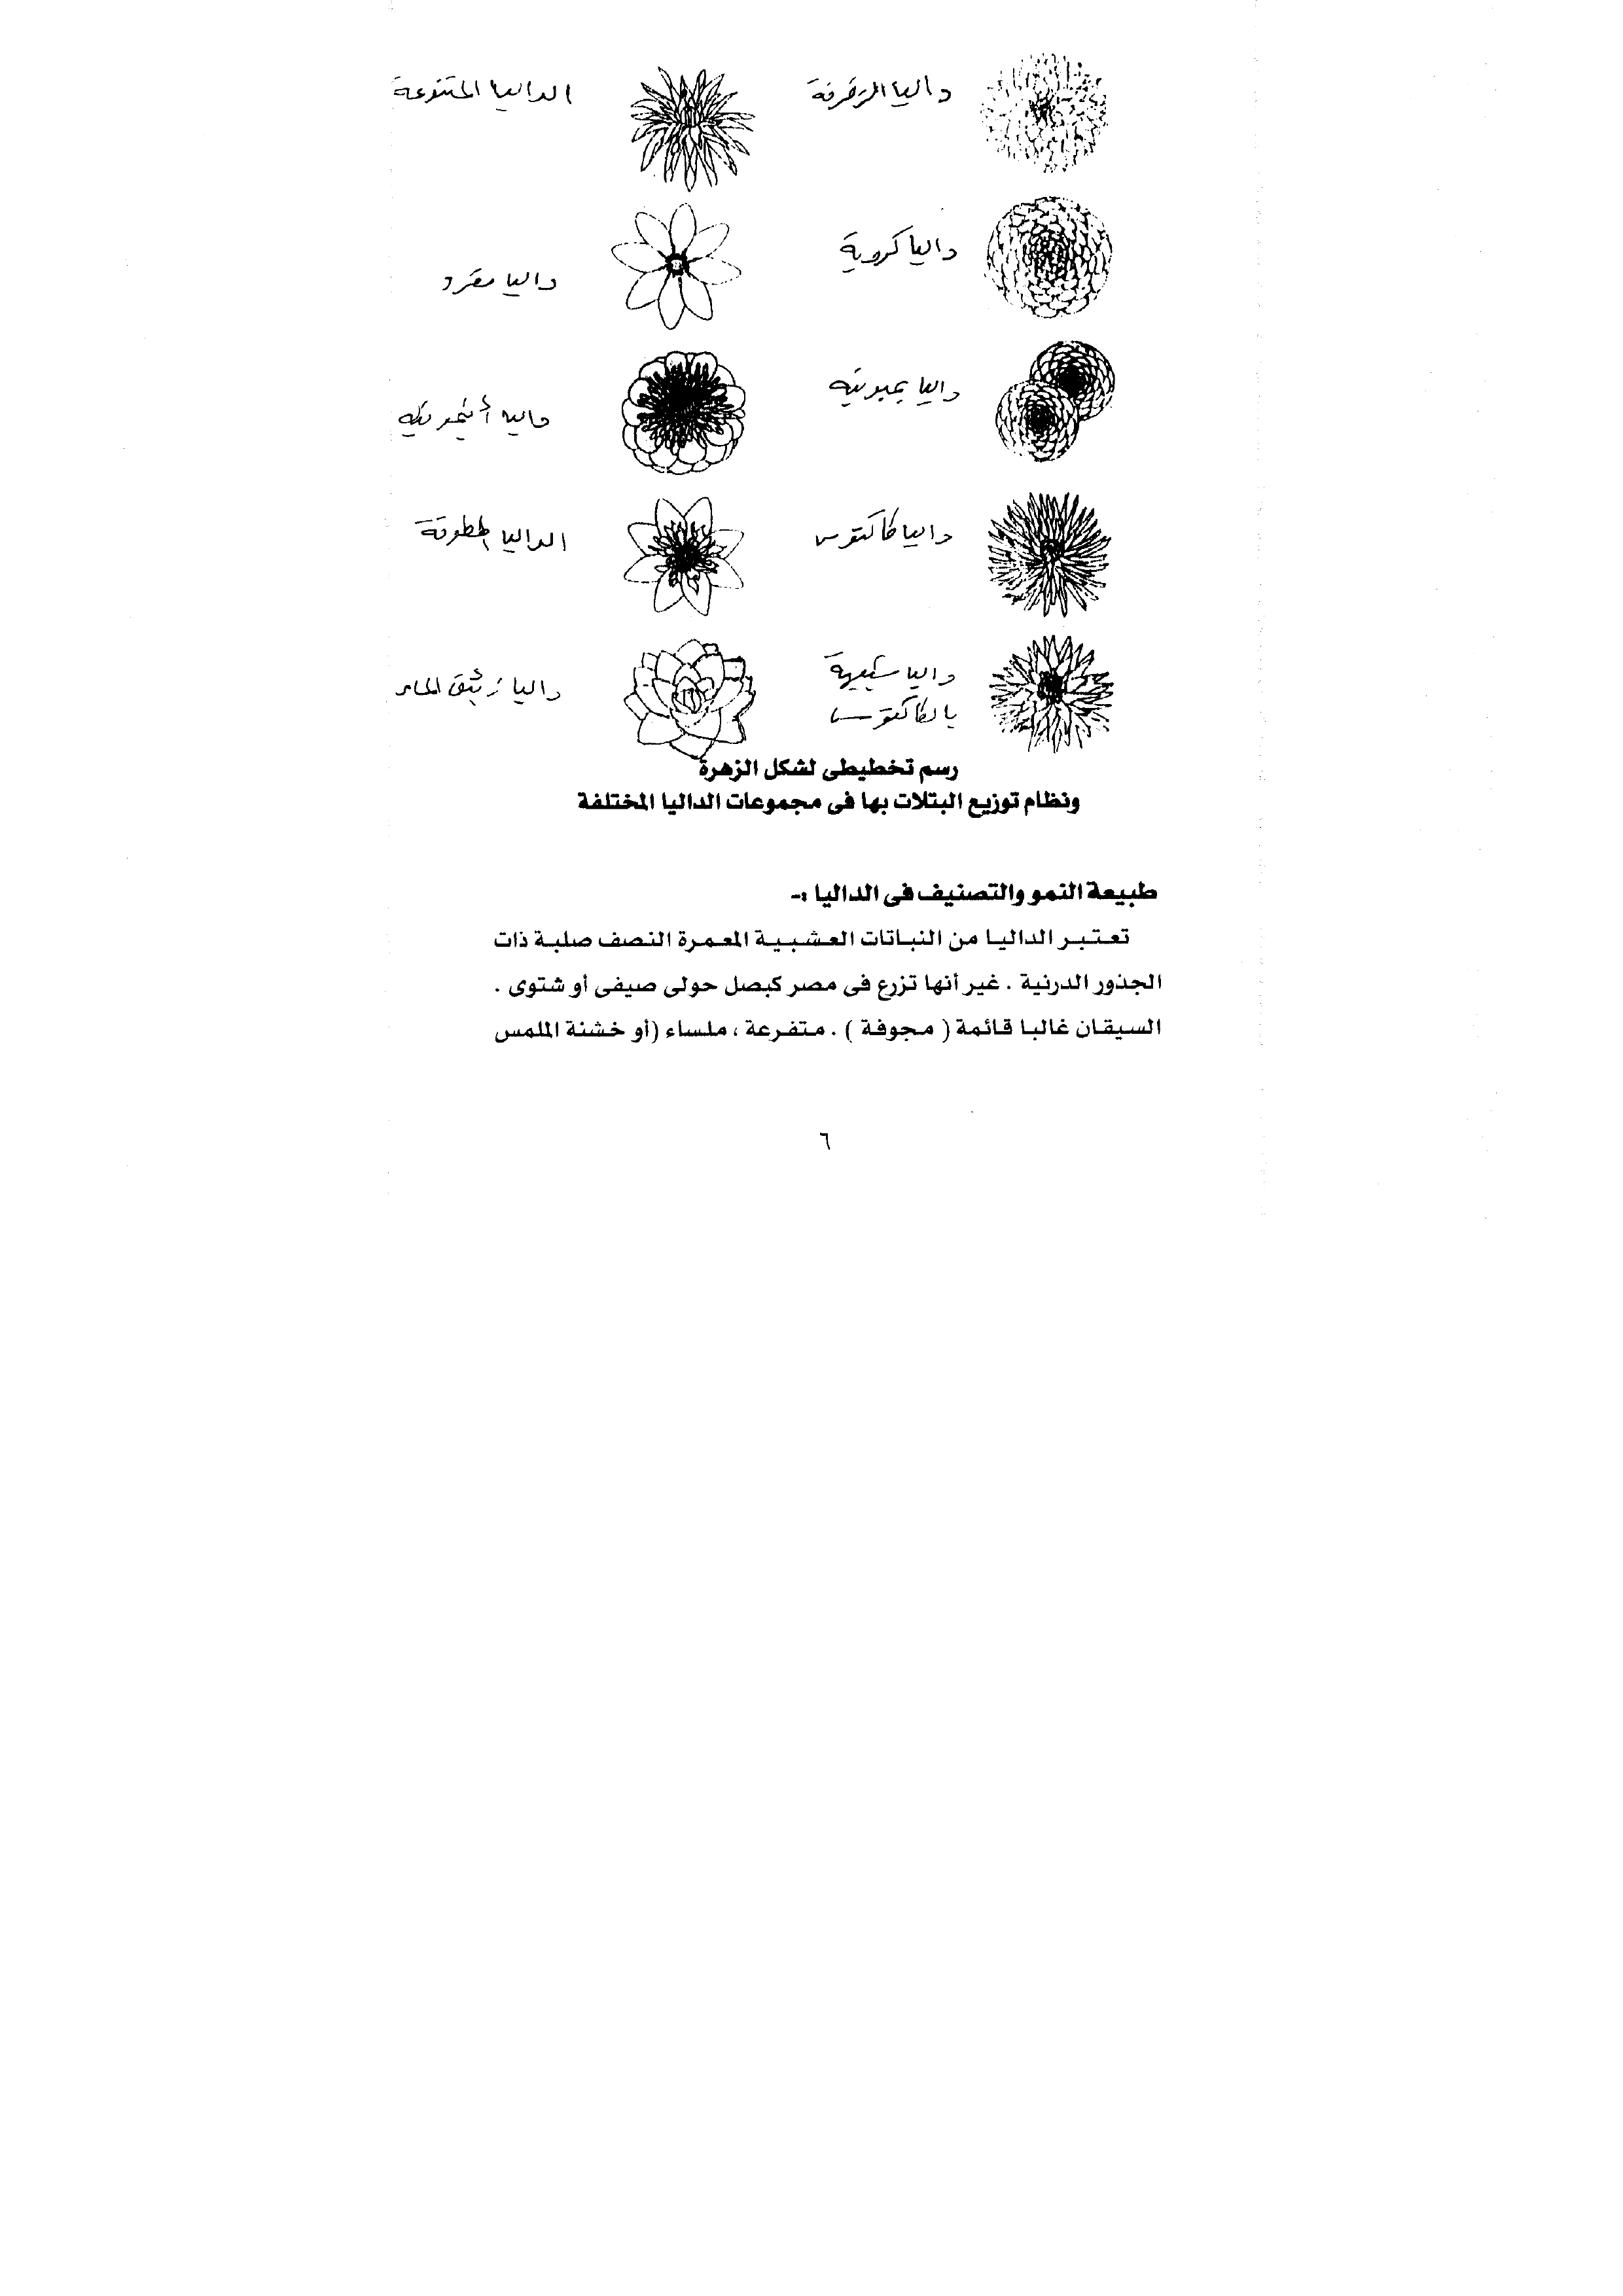 داليا المزخرفة
الداليا المتنوعة
داليا كروية
داليا مفرد
داليا بمبونية
داليا أنيمونية
داليا كاكتوس
الداليا المطوقة
داليا شبيهة
بالكاكتوس
داليا زنبق الماء
رسم تخطيطى لشكل الزهرة
ونظام توزيع البتلات بها فى مجموعات الداليا المختلفة
طبيعة النمو والتصنيف فى الداليا :-
تعتبر الداليا من النباتات العشبية المعمرة النصف صلبة ذات
الجذور الدرنية . غير أنها تزرع فى مصر كبصل حولى صيفى أو شتوى .
السيقان غالبا قائمة ( مجوفة ) . متفرعة ، ملساء (أو خشنة الملمس
٦